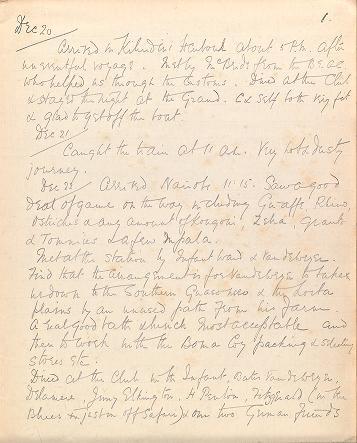 Dec 20
1.
Arrived in Kilindini Harbour about 5 P.M. after
uneventful voyage. Met by McBride from the B.E.A.C.
who helped us through the Customs. Dined at the Club
& stayed the night at the Grand. C & self both very fit
& glad to get off the boat.
Dec 21
Caught the train at 11 a.m. Very hot & dusty
journey.
Dec 22 Arrived Nairobi 11.15. Saw a good
deal of game on the way including Giraffe, Rhino,
Ostriches & any amount of Kongoni, Zebra, Grants
& Tommies & a few Impala.
Met at the station by Infant Ward & Vandeweyer.
Find that the arrangement is for Vandeweyer to take
us down to the Southern Guaso &
plains by an unused path from his farm.
A real good path which most acceptable and
then to work with the Boma Coy packing & selecting
stores etc.
Dined at the Club with Infant, Bates, Vandeweyer,
Delamere, Jimmy Elkington, H Penton, Fitzgerald (in the
Blues & just in off Safari) & our two German friends